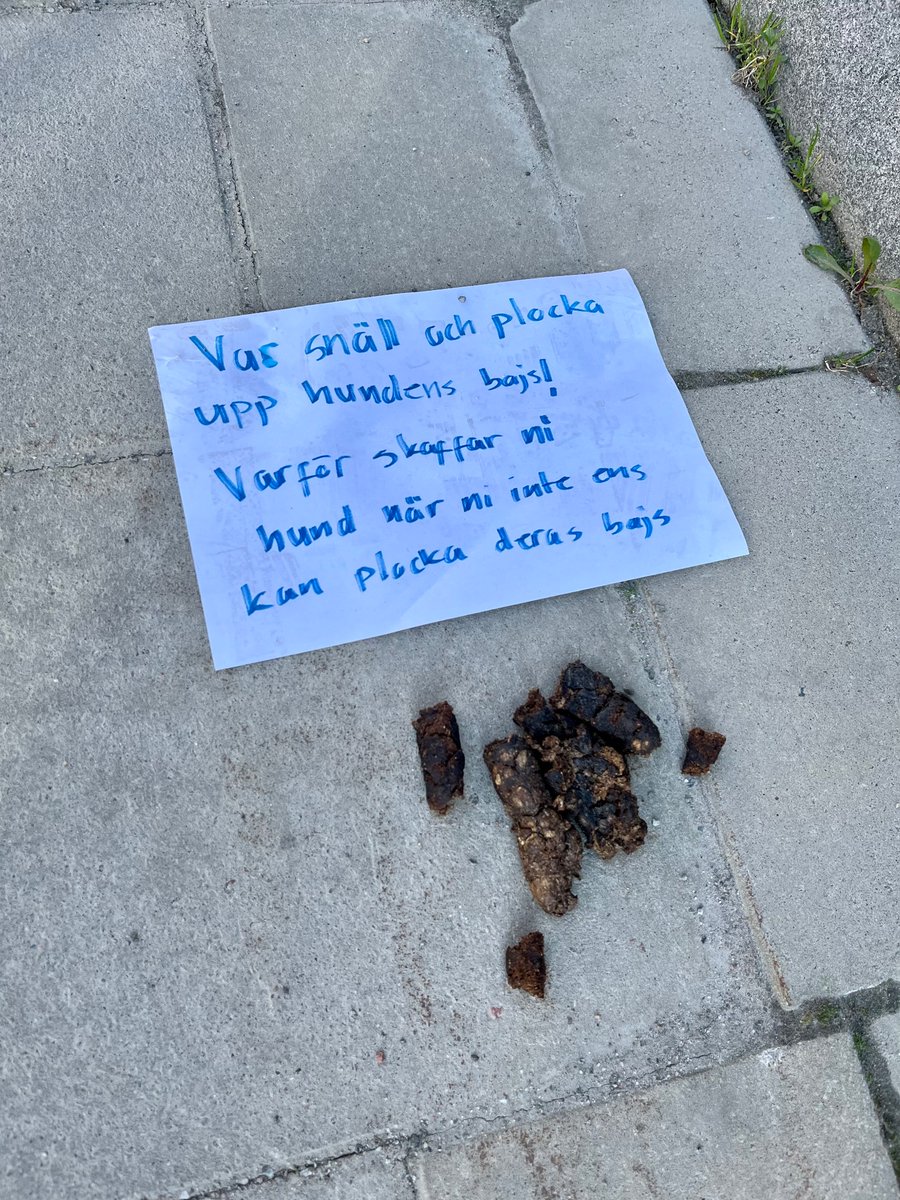 Var snäll och plocka
upp hundens bajs!
Varför skaffar ni
hund när ni inte ens
kan plocka deras bajs